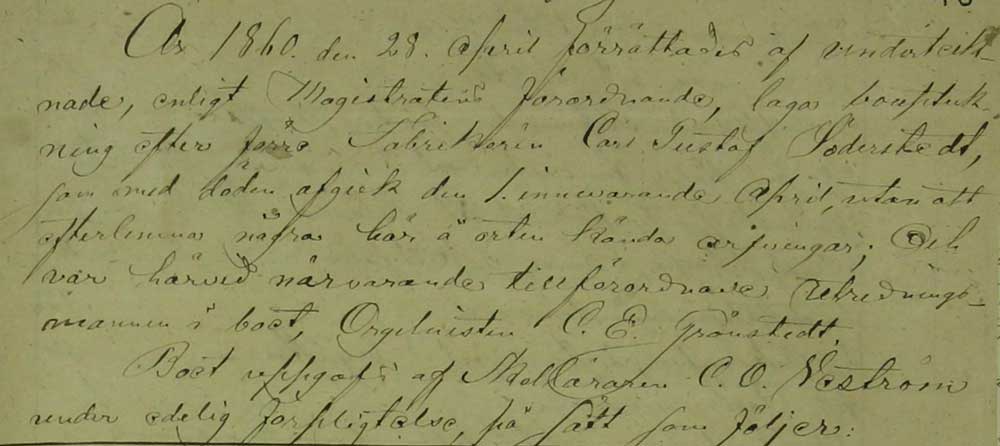 År 1860. den 28. April förrättades af underteck-
nade, enligt Magistratens förordnande, laga bouptek-
ning efter förre Fabrikören Carl Gustaf Söderstedt,
som med döden afgick den 1. innevarande April, utan att
efterlemna några här å orten kända arfvingar; Och
var härvid närvarande tillförordnade Utrednings-
mannen i boet, Orgelnisten C. E. Grönstedt.
Boet uppgafs af Skolläraren C. O. Vestrom
under edelig förpligtelse, på sätt som följer: